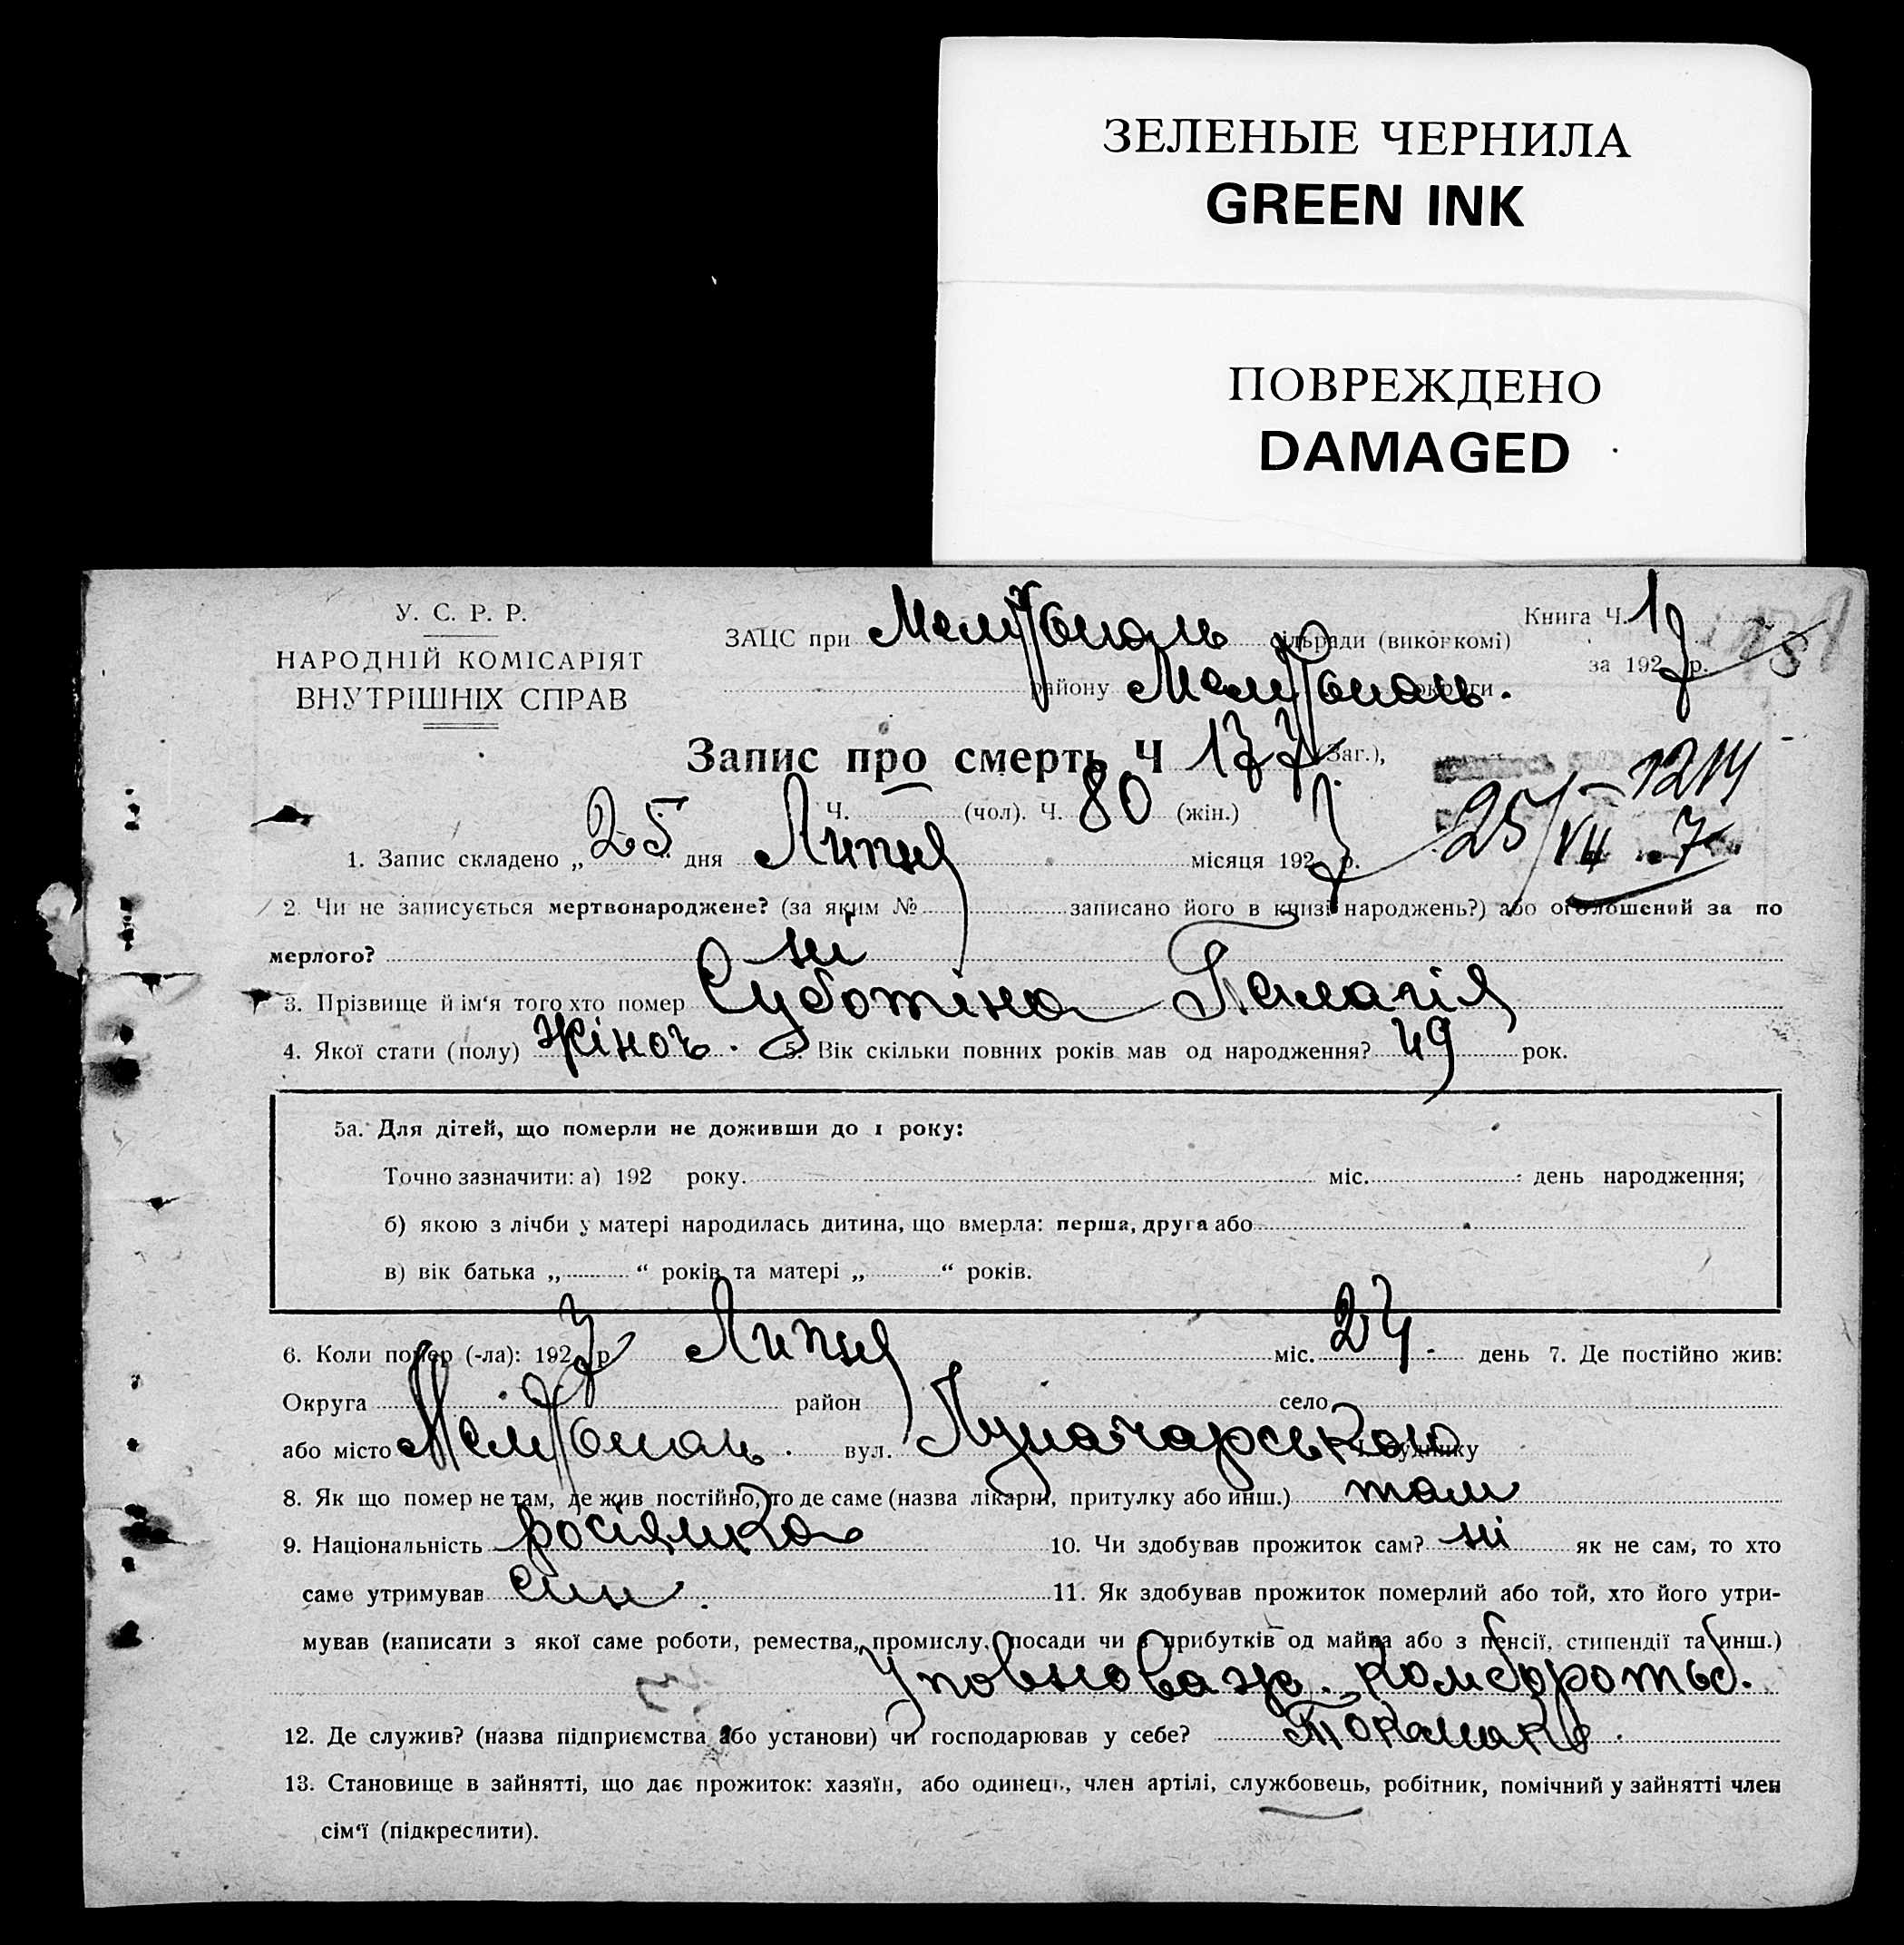 ЗЕЛЕНЫЕ ЧЕРНИЛА
GREEN INK
ПОВРЕЖДЕНО
DAMAGED
У. С. Р. Р.
НАРОДНІЙ КОМІСАРІЯТ
ВНУТРІШНІХ СПРАВ
Книга Ч. 1
ЗАЦС при Мелітополь сільради (виконкомі)
за 1927 р.
району Мелітополь округи
Запис про смерть Ч 177 (Заг.),
Ч. — (чол). Ч. 80 (жін.)
25/VII – 1214
7
1. Запис складено „25 дня Липня місяця 1927 р.
2. Чи не записується мертвонароджене? (за яким № записано його в книзі народжень?) або оголошений за по
мерлого? ні
3. Прізвище й ім'я того хто помер Суботіна Палагія
4. Якої стати (полу) жіноч. 5. Вік скільки повних років мав од народження? 49 рок.
5а. Для дітей, що померли не доживши до 1 року:
Точно зазначити: а) 192 року. міс. день народження;
б) якою з лічби у матері народилась дитина, що вмерла: перша, друга або
в) вік батька „ “ років та матері „ “ років.
6. Коли помер (-ла): 1927 р Липня міс. 24 день 7. Де постійно жив:
Округа район село
або місто Мелітополь. вул. Луначарською будинку
8. Як що помер не там, де жив постійно, то де саме (назва лікарні, притулку або инш.) там
9. Національність росіянка 10. Чи здобував прожиток сам? ні як не сам, то хто
саме утримував син. 11. Як здобував прожиток померлий або той, хто його утри-
мував (написати з якої саме роботи, ремества, промислу, посади чи з прибутків од майна або з пенсії, стипендії та инш.)
Уповноваж. комборотьб.
12. Де служив? (назва підприємства або установи) чи господарював у себе? Токмаки.
13. Становище в зайнятті, що дає прожиток: хазяїн, або одинець, член артілі, службовець, робітник, помічний у зайнятті член
сім'ї (підкреслити).